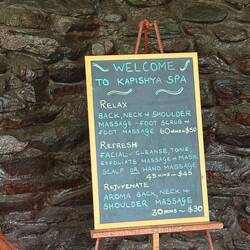 WELCOME
TO KAPISHYA SPA
RELAX
BACK, NECK + SHOULDER
MASSAGE - FOOT SCRUB +
FOOT MASSAGE 60 MINS - $50
REFRESH
FACIAL - CLEANSE, TONE,
EXFOLIATE MASSAGE + MASK
SCALP OR HAND MASSAGE
45 MINS - $45
REJUVENATE
AROMA BACK, NECK +
SHOULDER MASSAGE
30 MINS - $30